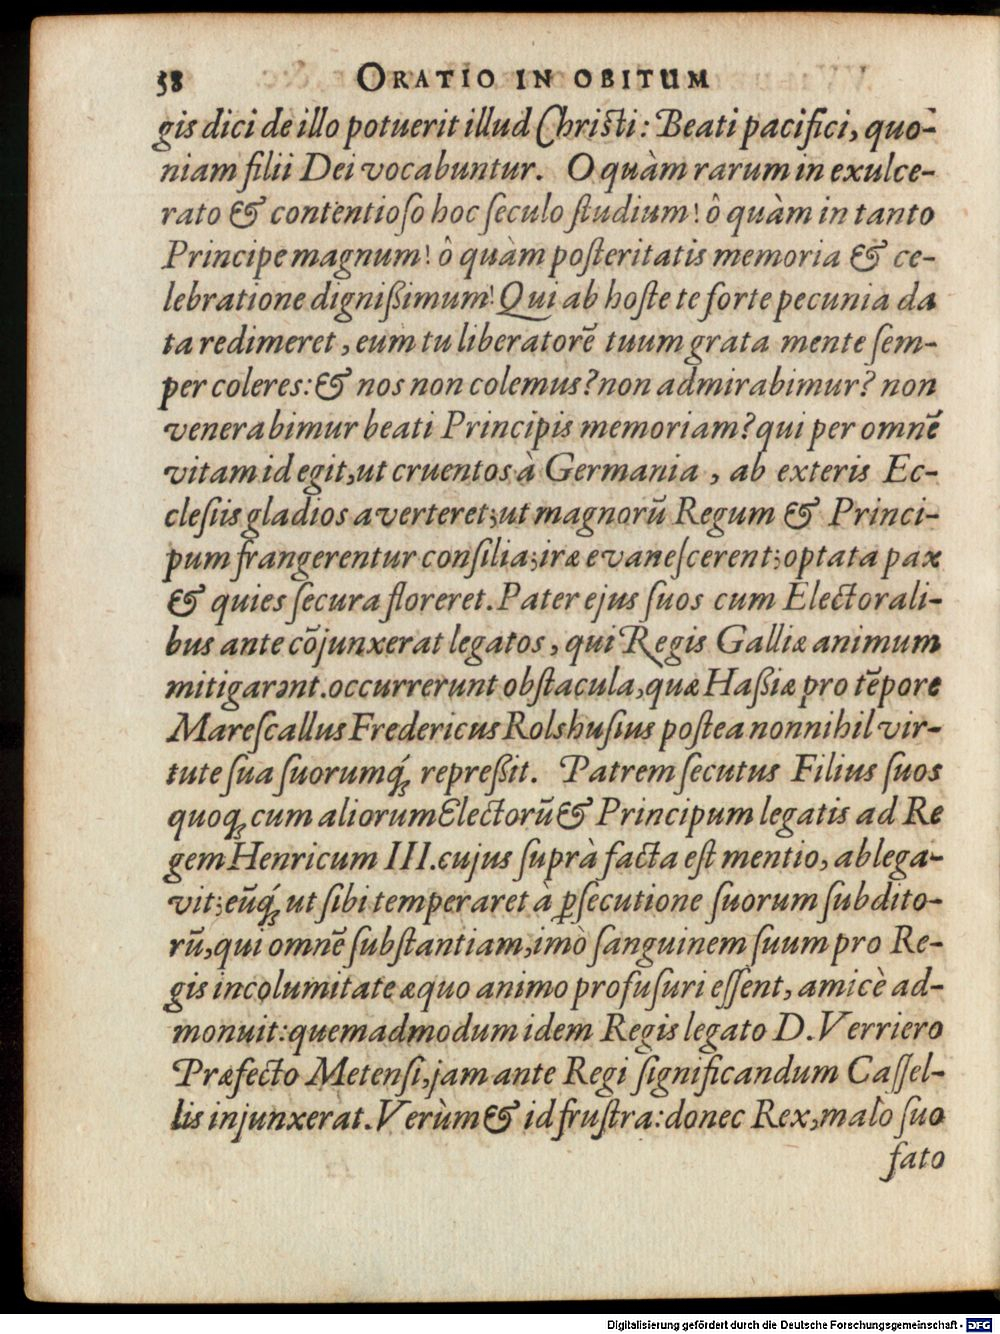 58 ORATIO IN OBITUM
gis dici de illo potuerit illud Christi: Beati pacifici, quo-
niam filii Dei vocabuntur. O quàm rarum in exulce-
rato & contentioſo hoc ſeculo ſtudium! ô quàm in tanto
Principe magnum! ô quàm poſteritatis memoria & ce-
lebratione dignißimum! Qui ab hoſte te forte pecunia da
ta redimeret, eum tu liberatorē tuum grata mente ſem-
per coleres: & nos non colemus? non admirabimur? non
venerabimur beati Principis memoriam? qui per omnē
vitam id egit, ut cruentos à Germania, ab exteris Ec-
cleſiis gladios averteret; ut magnorū Regum & Princi-
pum frangerentur conſilia; iræ evaneſcerent; optata pax
& quies ſecura floreret. Pater ejus ſuos cum Electorali-
bus ante cōjunxerat legatos, qui Regis Galliæ animum
mitigarənt. occurrerunt obſtacula, quæ Haßiæ pro tēpore
Mareſcallus Fredericus Rolshuſius poſtea nonnihil vir-
tute ſua ſuorumq́; repreßit. Patrem ſecutus Filius ſuos
quoq; cum aliorum Electorū & Principum legatis ad Re
gem Henricum III. cujus ſuprà facta eſt mentio, ablega-
vit; eūq́; ut ſibi temperaret à ꝑſecutione ſuorum ſubdito-
rū, qui omnē ſubſtantiam, imò ſanguinem ſuum pro Re-
gis incolumitate æquo animo profuſuri eſſent, amicè ad-
monuit: quemadmodum idem Regis legato D. Verriero
Præfecto Metenſi, jam ante Regi ſignificandum Caſſel-
lis injunxerat. Verùm & id fruſtra: donec Rex, malo ſuo
fato
Digitalisierung gefördert durch die Deutsche Forschungsgemeinschaft - DFG